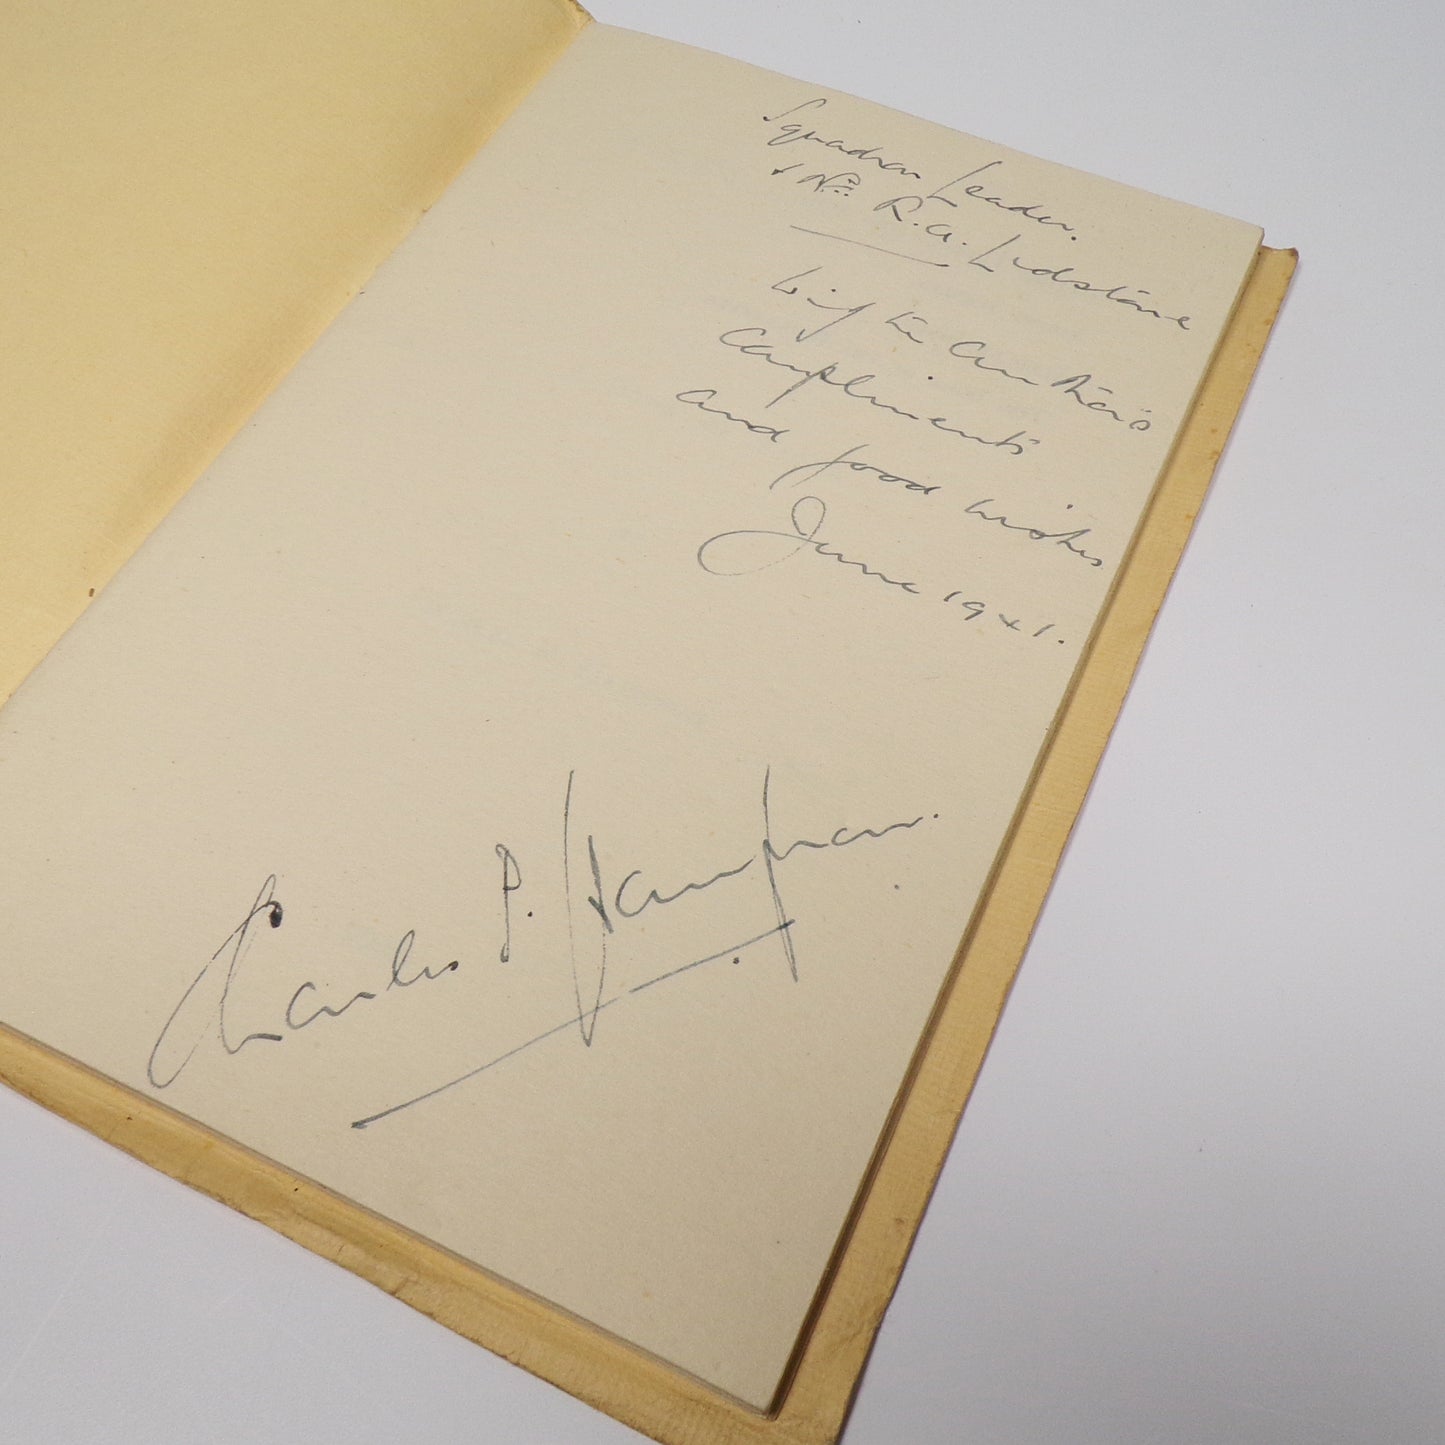 Squadron Leader.
& Mrs. R.A. Lidstone
with the Author's
Compliments
and good wishes
June 1941.
Charles P. Hampson.